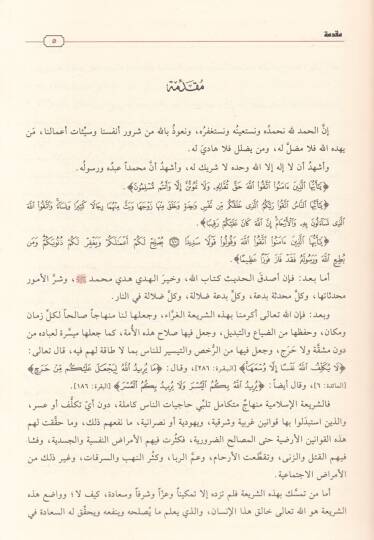 مقدمة
٥
مُقَدِّمَة
إنَّ الحمد لله نحمدُه ونستعينُه ونستغفرُه، ونعوذُ بالله من شرور أنفسنا وسيِّئات أعمالنا، مَن
يهده الله فلا مضلَّ له، ومن يضلل فلا هاديَ له.
وأشهدُ أن لا إله إلا الله وحده لا شريك له، وأشهدُ أنَّ محمداً عبدُه ورسولُه.
﴿يَٰٓأَيُّهَا ٱلَّذِينَ ءَامَنُوا۟ ٱتَّقُوا۟ ٱللَّهَ حَقَّ تُقَاتِهِۦ وَلَا تَمُوتُنَّ إِلَّا وَأَنتُم مُّسْلِمُونَ﴾.
﴿يَٰٓأَيُّهَا ٱلنَّاسُ ٱتَّقُوا۟ رَبَّكُمُ ٱلَّذِى خَلَقَكُم مِّن نَّفْسٍ وَٰحِدَةٍ وَخَلَقَ مِنْهَا زَوْجَهَا وَبَثَّ مِنْهُمَا رِجَالًا كَثِيرًا وَنِسَآءً وَٱتَّقُوا۟ ٱللَّهَ
ٱلَّذِى تَسَآءَلُونَ بِهِۦ وَٱلْأَرْحَامَ إِنَّ ٱللَّهَ كَانَ عَلَيْكُمْ رَقِيبًا﴾.
﴿يَٰٓأَيُّهَا ٱلَّذِينَ ءَامَنُوا۟ ٱتَّقُوا۟ ٱللَّهَ وَقُولُوا۟ قَوْلًا سَدِيدًا ۝ يُصْلِحْ لَكُمْ أَعْمَٰلَكُمْ وَيَغْفِرْ لَكُمْ ذُنُوبَكُمْ وَمَن
يُطِعِ ٱللَّهَ وَرَسُولَهُۥ فَقَدْ فَازَ فَوْزًا عَظِيمًا﴾.
أما بعد: فإن أصدقَ الحديث كتاب الله، وخيرَ الهدي هدي محمد ﷺ، وشرَّ الأمور
محدثاتها، وكلَّ محدثة بدعة، وكلَّ بدعة ضلالة، وكلَّ ضلالة في النار.
وبعد: فإن الله تعالى أكرمنا بهذه الشريعة الغرَّاء، وجعلها لنا منهاجاً صالحاً لكلِّ زمان
ومكان، وحفظها من الضياع والتبديل، وجعل فيها صلاح هذه الأمة، كما جعلها ميسرة لعباده من
دون مشقَّة ولا حَرَج، وجعل فيها من الرُّخص والتيسير للناس بما لا طاقة لهم فيه، قال تعالى:
﴿لَا يُكَلِّفُ ٱللَّهُ نَفْسًا إِلَّا وُسْعَهَا﴾ [البقرة: ٢٨٦]، وقال: ﴿مَا يُرِيدُ ٱللَّهُ لِيَجْعَلَ عَلَيْكُم مِّنْ حَرَجٍ﴾
[المائدة: ٦]، وقال أيضاً: ﴿يُرِيدُ ٱللَّهُ بِكُمُ ٱلْيُسْرَ وَلَا يُرِيدُ بِكُمُ ٱلْعُسْرَ﴾ [البقرة: ١٨٦].
فالشريعة الإسلامية منهاجٌ متكامل تلبِّي حاجيات الناس كاملة، دون أيِّ تكلُّف أو عسر،
والذين استبدَلوا بها قوانين غربية وشرقية، ويهودية أو نصرانية، ما نفعتهم ذلك، وما حقَّقت لهم
هذه القوانين الأرضية حتى المصالح الضرورية، فكثُرت فيهم الأمراض النفسية والجسدية، وفشا
فيهم القتل والزنى، وتقطَّعت الأرحام، وعمَّ الربا، وكثُر النهب والسرقات، وغير ذلك من
الأمراض الاجتماعية.
أما من تمسَّك بهذه الشريعة فلم تزده إلا تمكيناً وعزًّا وشرفاً وسعادة، كيف لا؛ وواضع هذه
الشريعة هو الله تعالى خالق هذا الإنسان، والذي يعلم ما يُصلحه وينفعه ويحقِّق له السعادة في